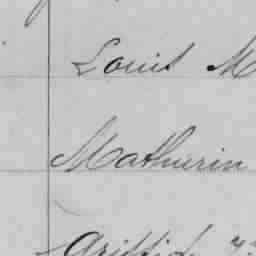 Louis M
Mathurin
Griffith